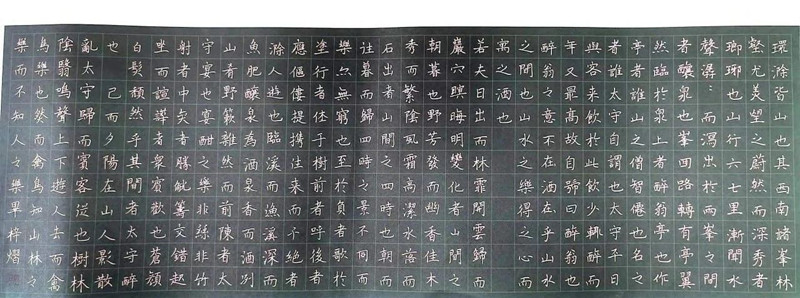 環滁皆山也其西南諸峯林
壑尤美望之蔚然而深秀者
瑯琊也山行六七里漸聞水
聲潺〻而瀉出於兩峯之間
者釀泉也峯回路轉有亭翼
然臨於泉上者醉翁亭也作
亭者誰山之僧智僊也名之
者誰太守自謂也太守
與客來飲於此飲少輒醉而
年又最高故自號曰醉翁也
醉翁之意不在酒在乎山水
之間也山水之樂得之心而
寓之酒也
若夫日出而林霏開雲歸而
巖穴暝晦明變化者山間之
朝暮也野芳發而幽香佳木
秀而繁陰風霜高潔水落而
石出者山間之四時也朝而
往暮而歸四時之景不同而
樂亦無窮也至於負者歌於
塗行者休于樹前者呼後者
應傴僂提攜往來而不絕者
滁人遊也臨溪而漁溪深而
魚肥釀泉為酒泉香而酒洌
山肴野蔌雜然而前陳者太
守宴也宴酣之樂非絲非竹
射者中弈者勝觥籌交錯起
坐而諠譁者眾賓歡也蒼顏
白髮頹然乎其間者太守醉
也 已而夕陽在山人影散
亂太守歸而賓客從也樹林
陰翳鳴聲上下遊人去而禽
鳥樂也然而禽鳥知山林之
樂而不知人之樂 畢梓熠